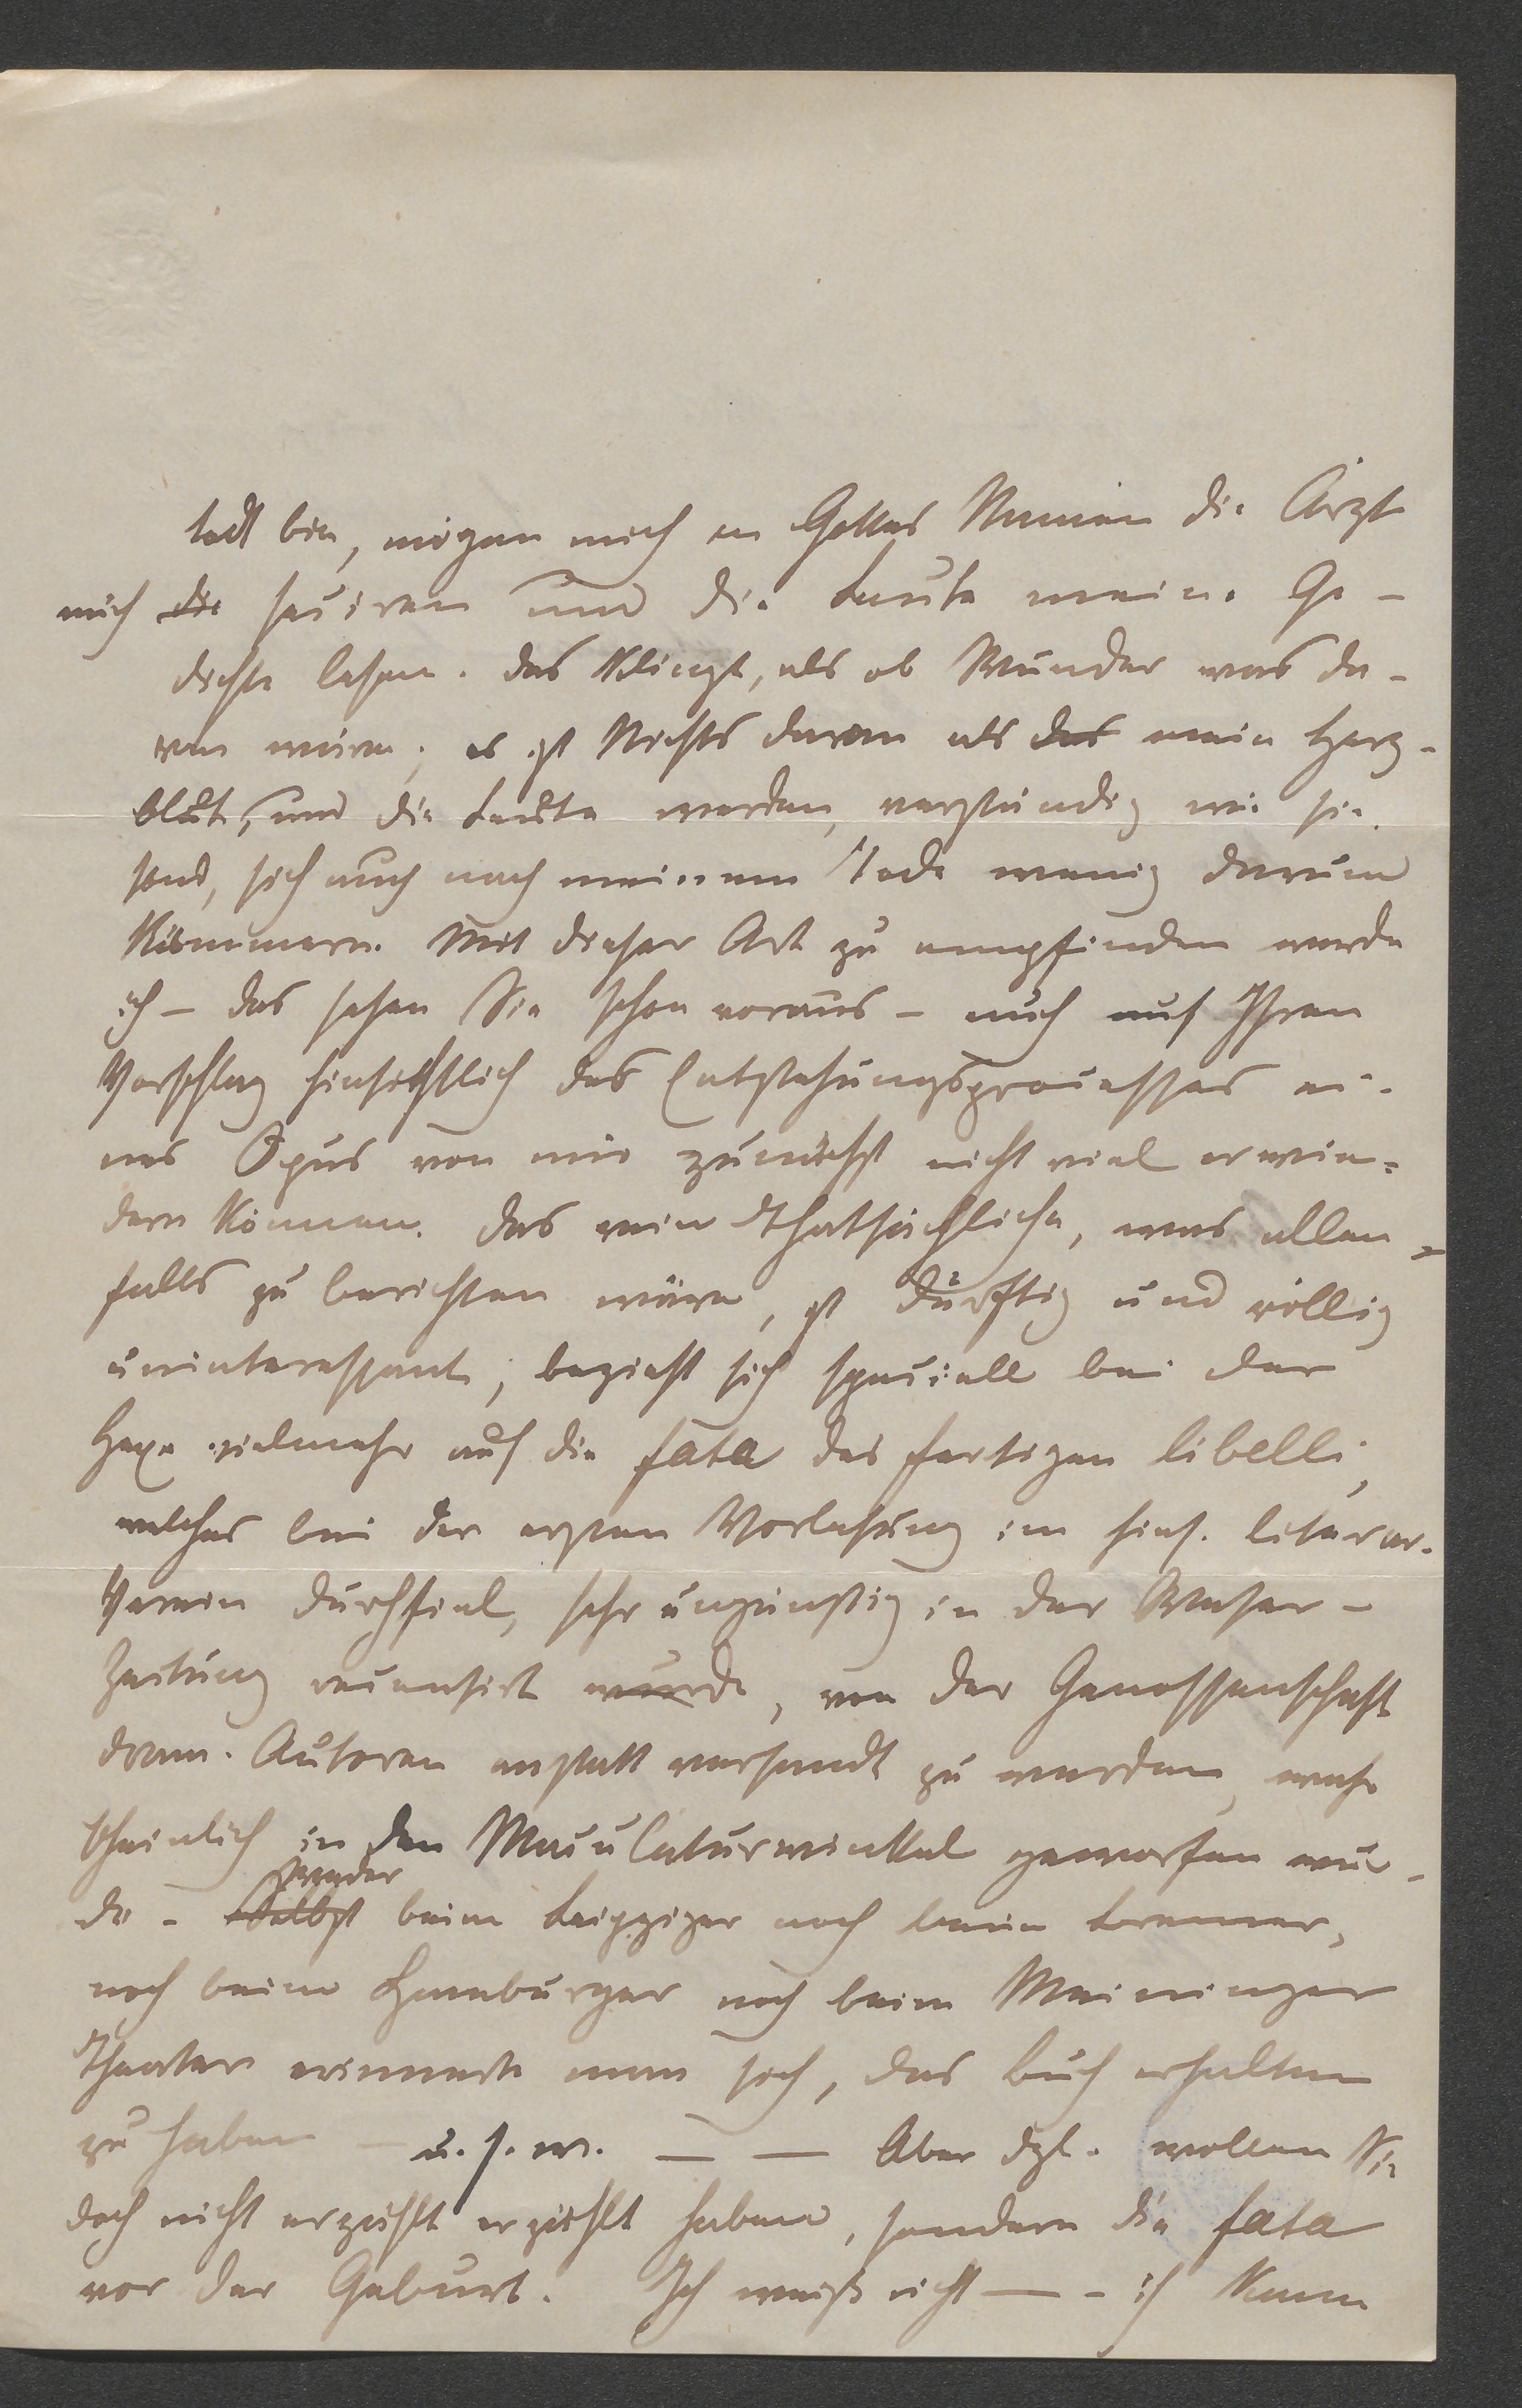 todt bin, mögen mich in Gottes Namen die Ärzte
mich die seciren und die Leute meine Ge-
dichte lesen. Das klingt, als ob Wunder was da-
ran wäre; es ist Nichts daran als das mein Herz-
blut, und die Leute werden, verständig wie sie
sind, sich auch nach meinem Tode wenig darum
kümmern. Mit dieser Art zu empfinden werde
ich – das sehen Sie schon voraus – auch auf Ihren
Vorschlag hinsichtlich des Entstehungsprocesses ei-
nes Opus von mir zunächst nicht viel erwie-
dern können. Das rein Thatsächliche, was allen=
falls zu berichten wäre, ist dürftig und völlig
uninteressant, bezieht sich speciell bei der
Hexe vielmehr auf die fata des fertigen libelli,
welches bei der ersten Vorlesung im hies. literar.
Verein durchfiel, sehr ungünstig in der Weser-
Zeitung recensirt wurde, von der Genossenschaft
dram. Autoren anstatt versandt zu werden, wahr
scheinlich in den Maculaturwinkel geworfen wur-
de – Selbst weder beim Leipziger noch beim Bremer,
noch beim Hamburger noch beim Meininger
Theater erinnerte man sich, das Buch erhalten
zu haben – u. s. w. — — Aber dgl. wollen Sie
doch nicht erzählt erzählt haben, sondern die fata
vor der Geburt. Ich weiß nicht — – ich kann